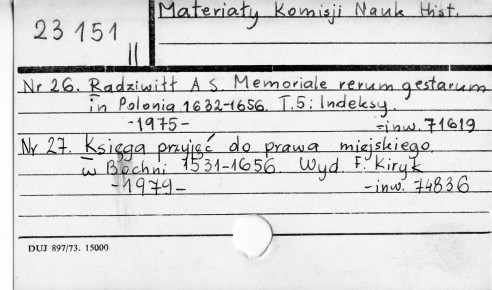 Materiały Komisji Nauk Hist.
23 151
II
Nr 26. Radziwiłł A S. Memoriale rerum gestarum
in Polonia 1632-1656. T.5: Indeksy.
-1975- =inw. 71619
Nr 27. Księga przyjęć do prawa miejskiego
w Bochni 1531-1656. Wyd. F. Kiryk
-1979- -inw. 74836
DUJ 897/73. 15000